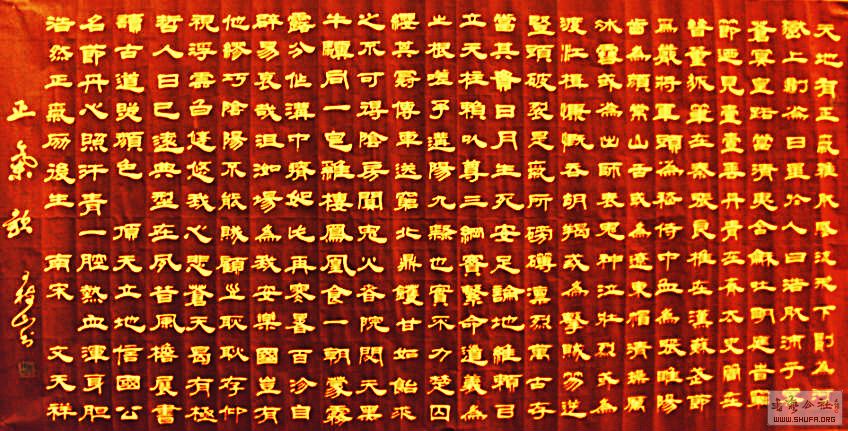 天地有正氣雜然賦流形下則為河
嶽上則為日星於人曰浩然沛乎塞
蒼冥皇路當清夷含龢吐明庭時窮
節迺見壹壹垂丹青在齊太史簡在
晉董狐筆在秦張良椎在漢蘇武節
為嚴將軍頭為嵇侍中血為張睢陽
齒為顏常山舌或為遼東帽清操厲
冰雪或為出師表鬼神泣壯烈或為
渡江楫慷慨吞胡羯或為擊賊笏逆
豎頭破裂是氣所磅礴凜烈萬古存
當其貫日月生死安足論地維賴以
立天柱賴以尊三綱實繫命道義為
之根嗟予遘陽九隸也實不力楚囚
纓其冠傳車送窮北鼎鑊甘如飴求
之不可得陰房闃鬼火春院閟天黑
牛驥同一皂雞棲鳳凰食一朝蒙霧
露分作溝中瘠如此再寒暑百沴自
辟易哀哉沮洳場為我安樂國豈有
他繆巧陰陽不能賊顧此耿耿存仰
視浮雲白悠悠我心悲蒼天曷有極
哲人日已遠典型在夙昔風檐展書
讀古道照顏色 頂天立地信國公
名節丹心照汗青一腔熱血渾身膽
浩然正氣励後生 南宋 文天祥
正氣歌
WWW.SHUFA.ORG